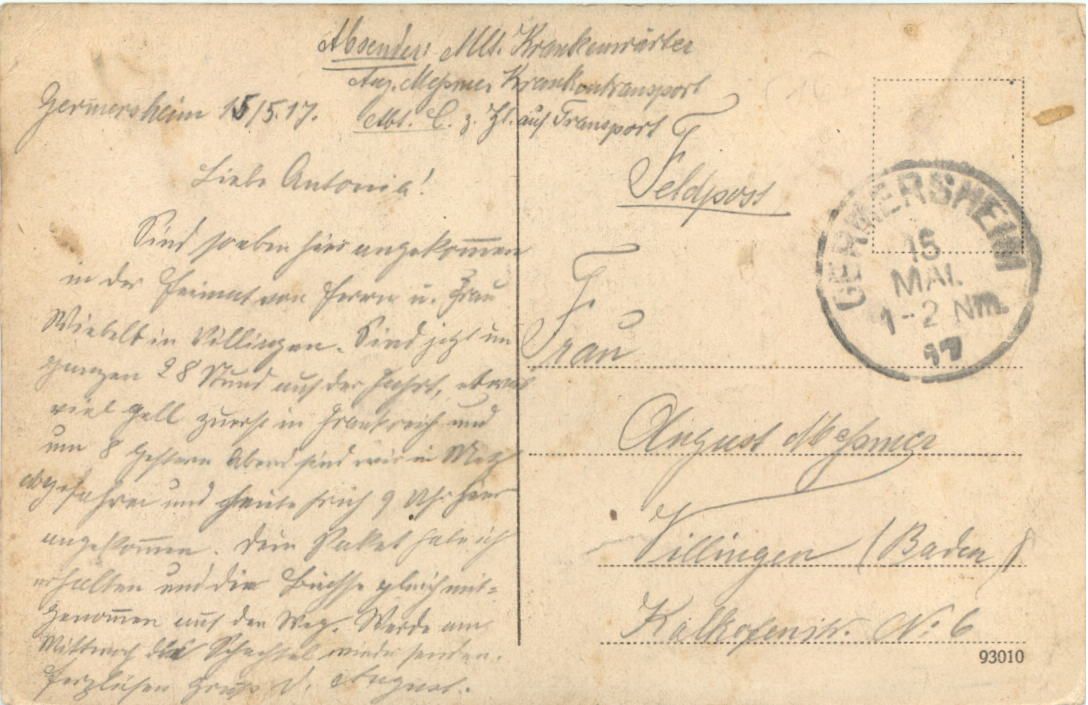 Absender: Milt. Krankenwärter
Aug. Meßmer Krankentransport
Abt. C. z. Zt. auf Transport
Germersheim 15/5.17.
Feldpost
GERMERSHEIM
15
MAI.
1-2 Nm.
17
Liebe Antonia!
Sind soeben hier angekommen
in der Heimat von Herrn u. Frau
Wiebelt in Villingen. Sind jetzt im
ganzen 28 Stund auf der Fahrt, etwas
viel gell zuerst in Frankreich und
um 8 gestern Abend sind wir in Metz
abgefahren und heute früh 9 Uhr hier
angekommen. Dein Paket habe ich
erhalten und die Büchse gleich mit-
genommen auf den Weg. Werde am
Mittwoch die Schachtel wieder senden.
Herzlichen Gruß D. August.
Frau
August Meßmer
Villingen (Baden)
Kalkofenstr. No 6
93010